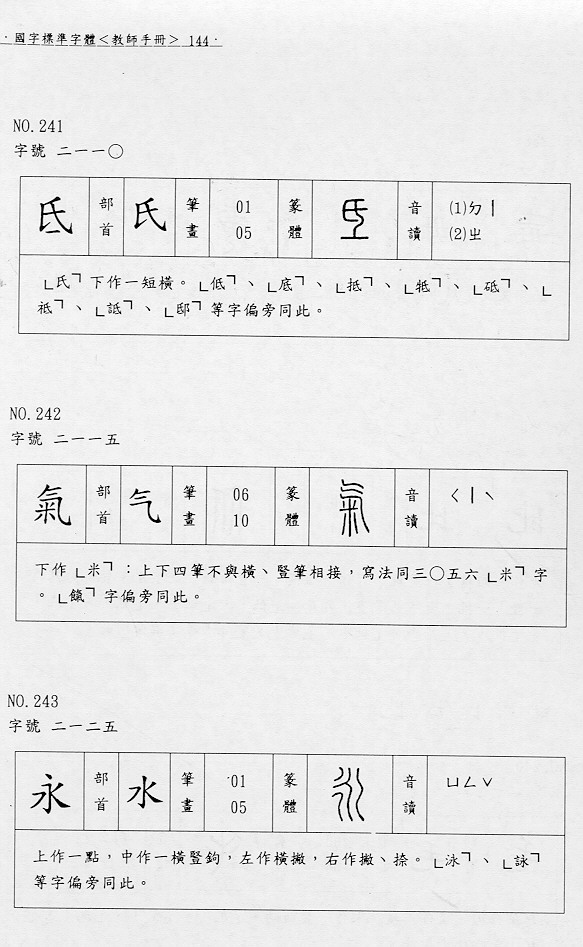 ·國字標準字體<教師手冊> 144·
NO.241
字號 二一一〇
氐 部首 氏 筆畫 01 05 篆體 音讀 (1)ㄉㄧ (2)ㄓ
「氐」下作一短橫。「低」、「底」、「抵」、「牴」、「砥」、「
祗」、「詆」、「邸」等字偏旁同此。
NO.242
字號 二一一五
氣 部首 气 筆畫 06 10 篆體 音讀 ㄑㄧˋ
下作「米」：上下四筆不與橫、豎筆相接，寫法同三〇五六「米」字
。「餼」字偏旁同此。
NO.243
字號 二一二五
永 部首 水 筆畫 01 05 篆體 音讀 ㄩㄥˇ
上作一點，中作一橫豎鉤，左作橫撇，右作撇、捺。「泳」、「詠」
等字偏旁同此。